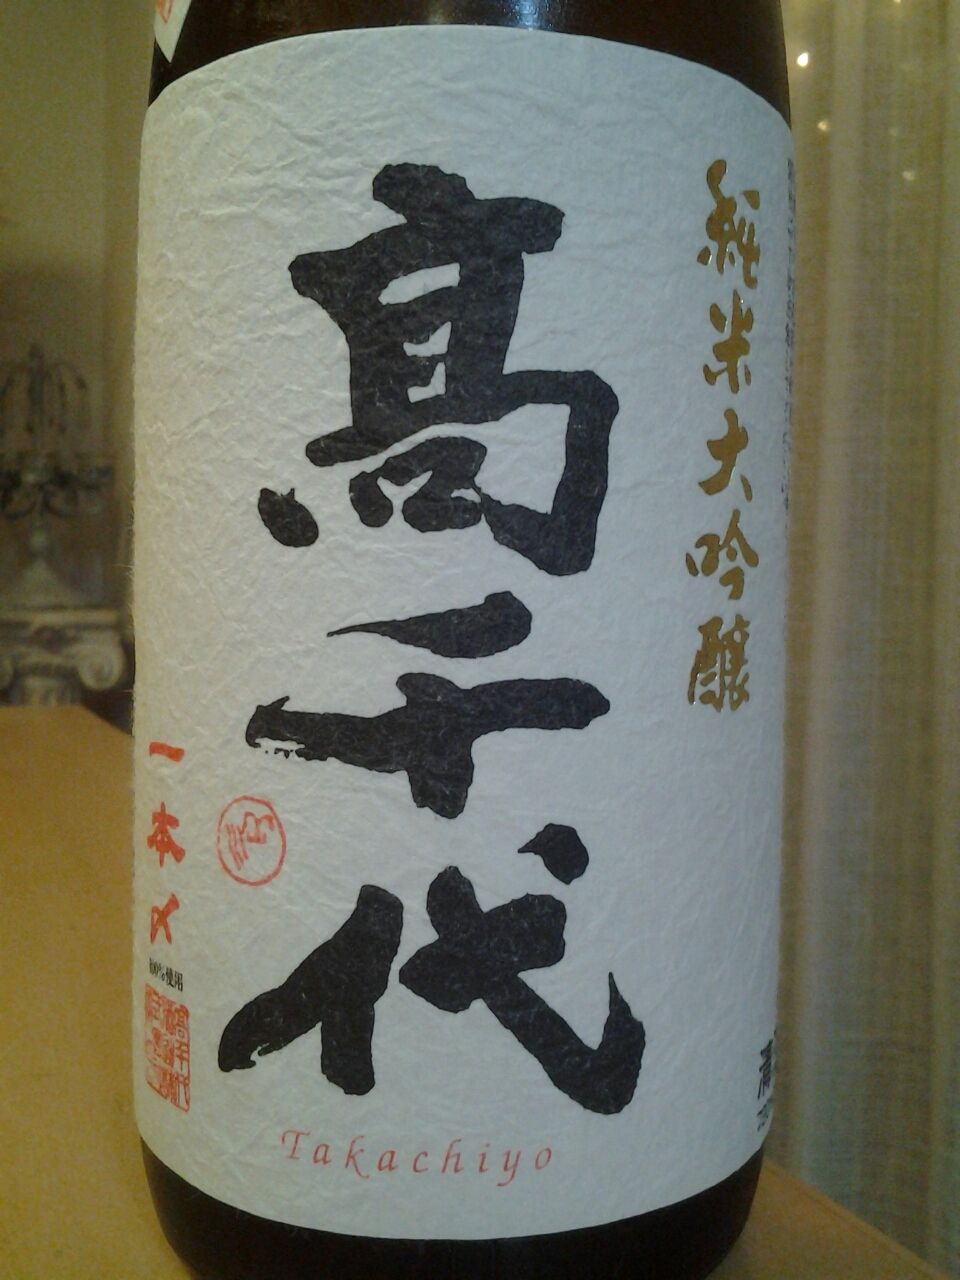 純米大吟醸
髙千代
一本〆
100%使用
Takachiyo